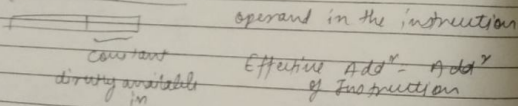 operand in the instruction
constant
directly available
in
Effective Add^r = Add^r
of Instruction